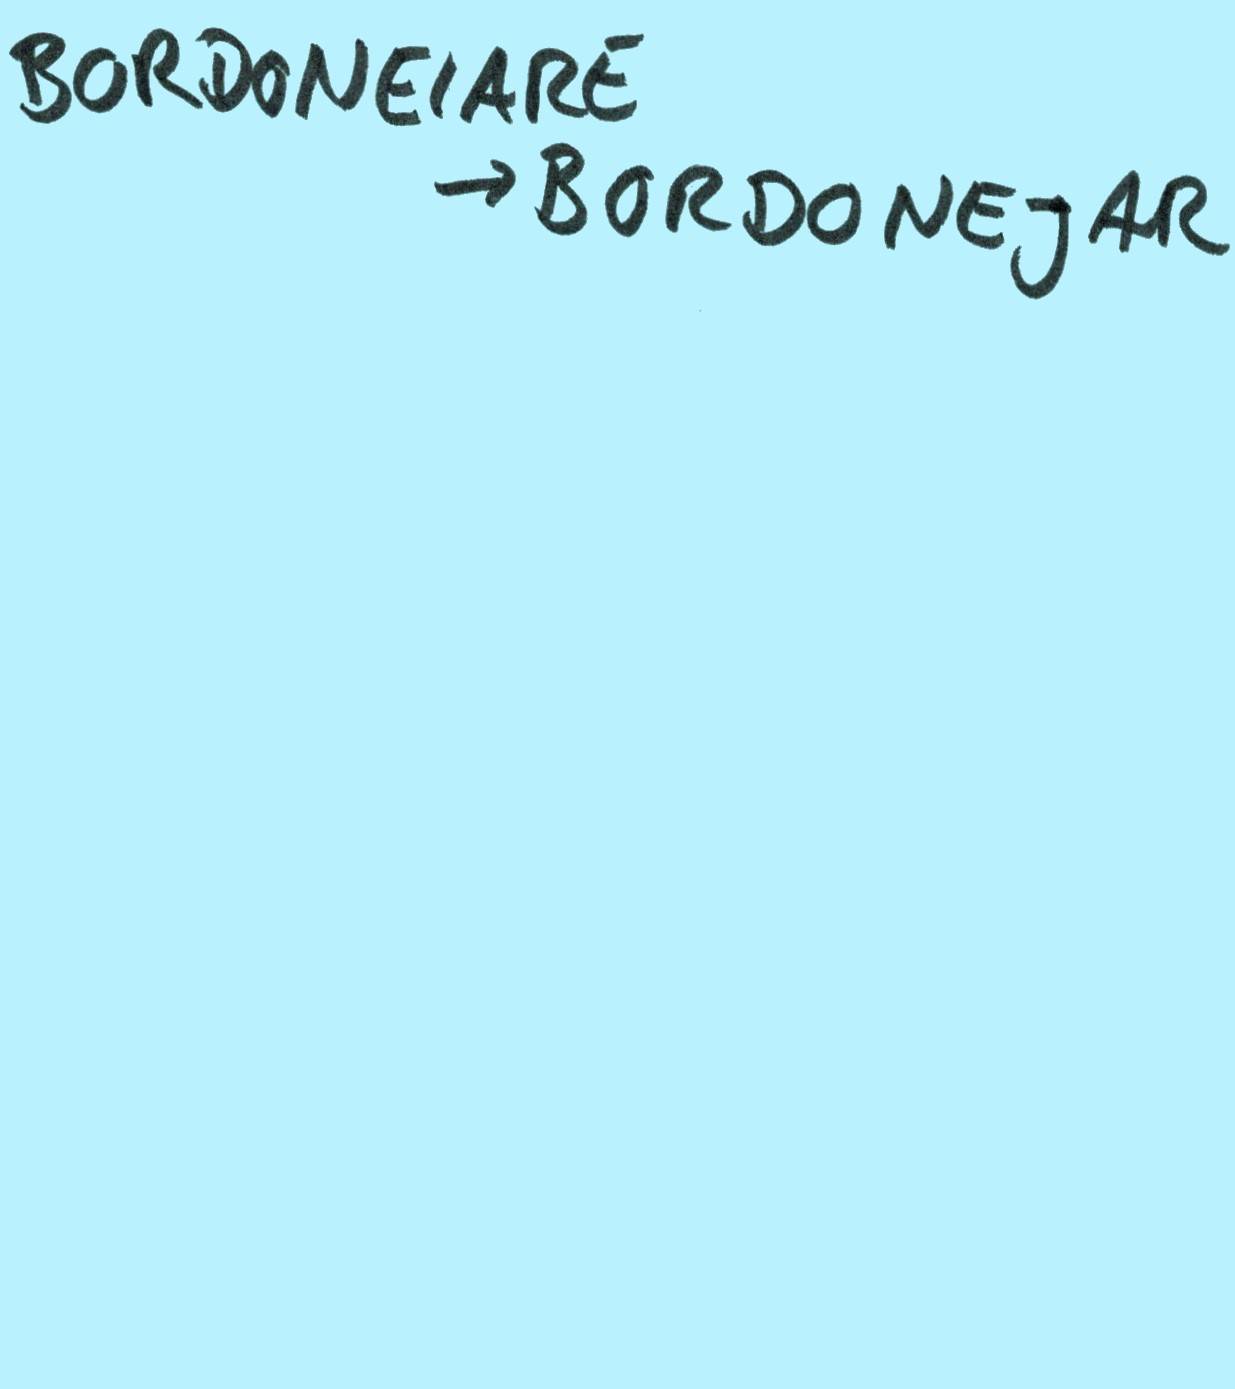 BORDONEIARE
→ BORDONEJAR